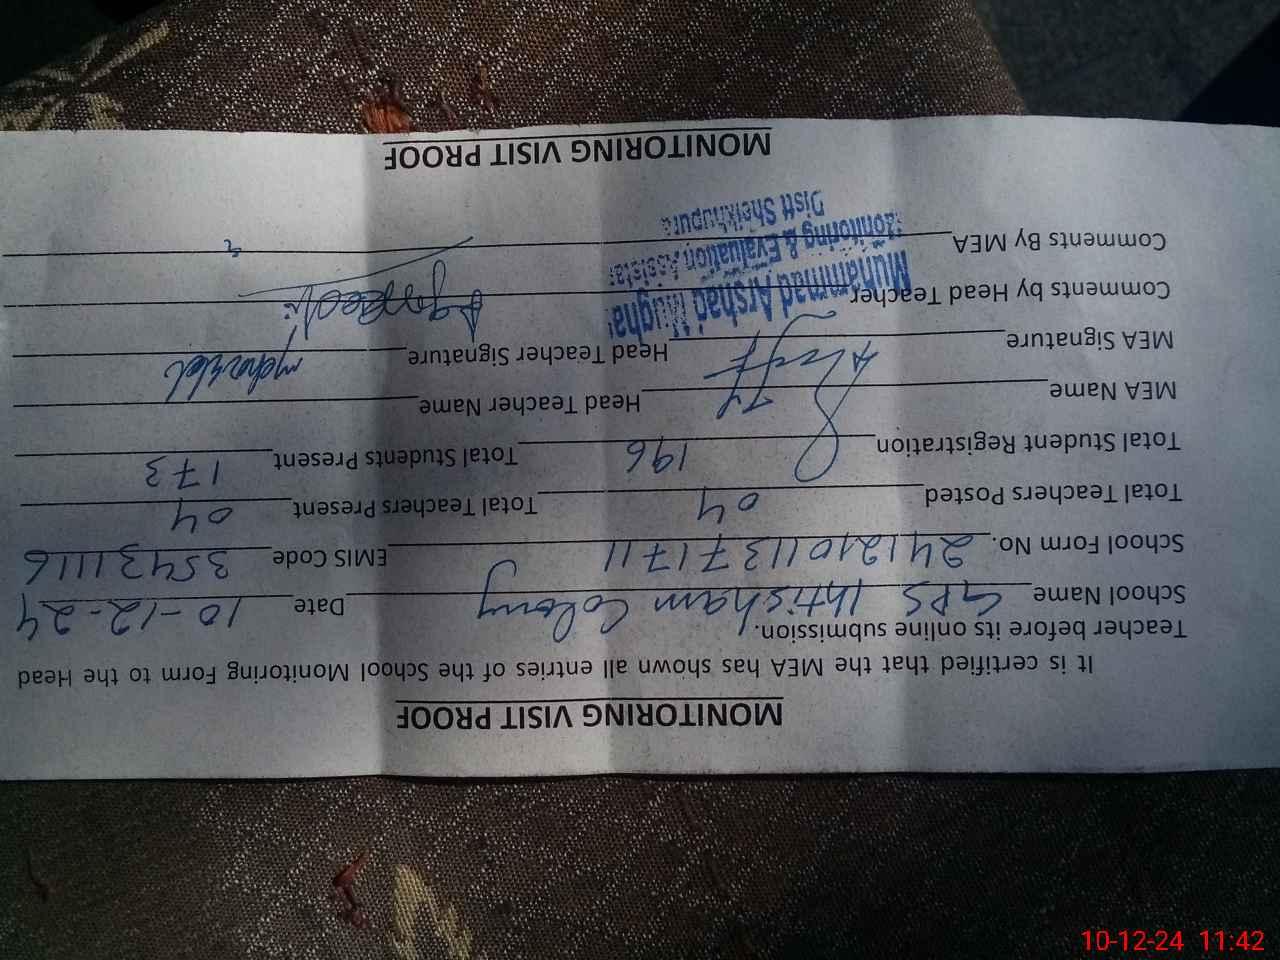 MONITORING VISIT PROOF
It is certified that the MEA has shown all entries of the School Monitoring Form to the Head
Teacher before its online submission.
School Name GPS Ihtisham Colony Date 10-12-24
School Form No. 24121011371711 EMIS Code 35431116
Total Teachers Posted 04 Total Teachers Present 04
Total Student Registration 196 Total Students Present 173
MEA Name Head Teacher Name
MEA Signature Head Teacher Signature
Comments by Head Teacher
Comments By MEA
Muhammad Arshad Mugha
Monitoring & Evaluation Assista
Distt Sheikhupura
MONITORING VISIT PROOF
10-12-24 11:42